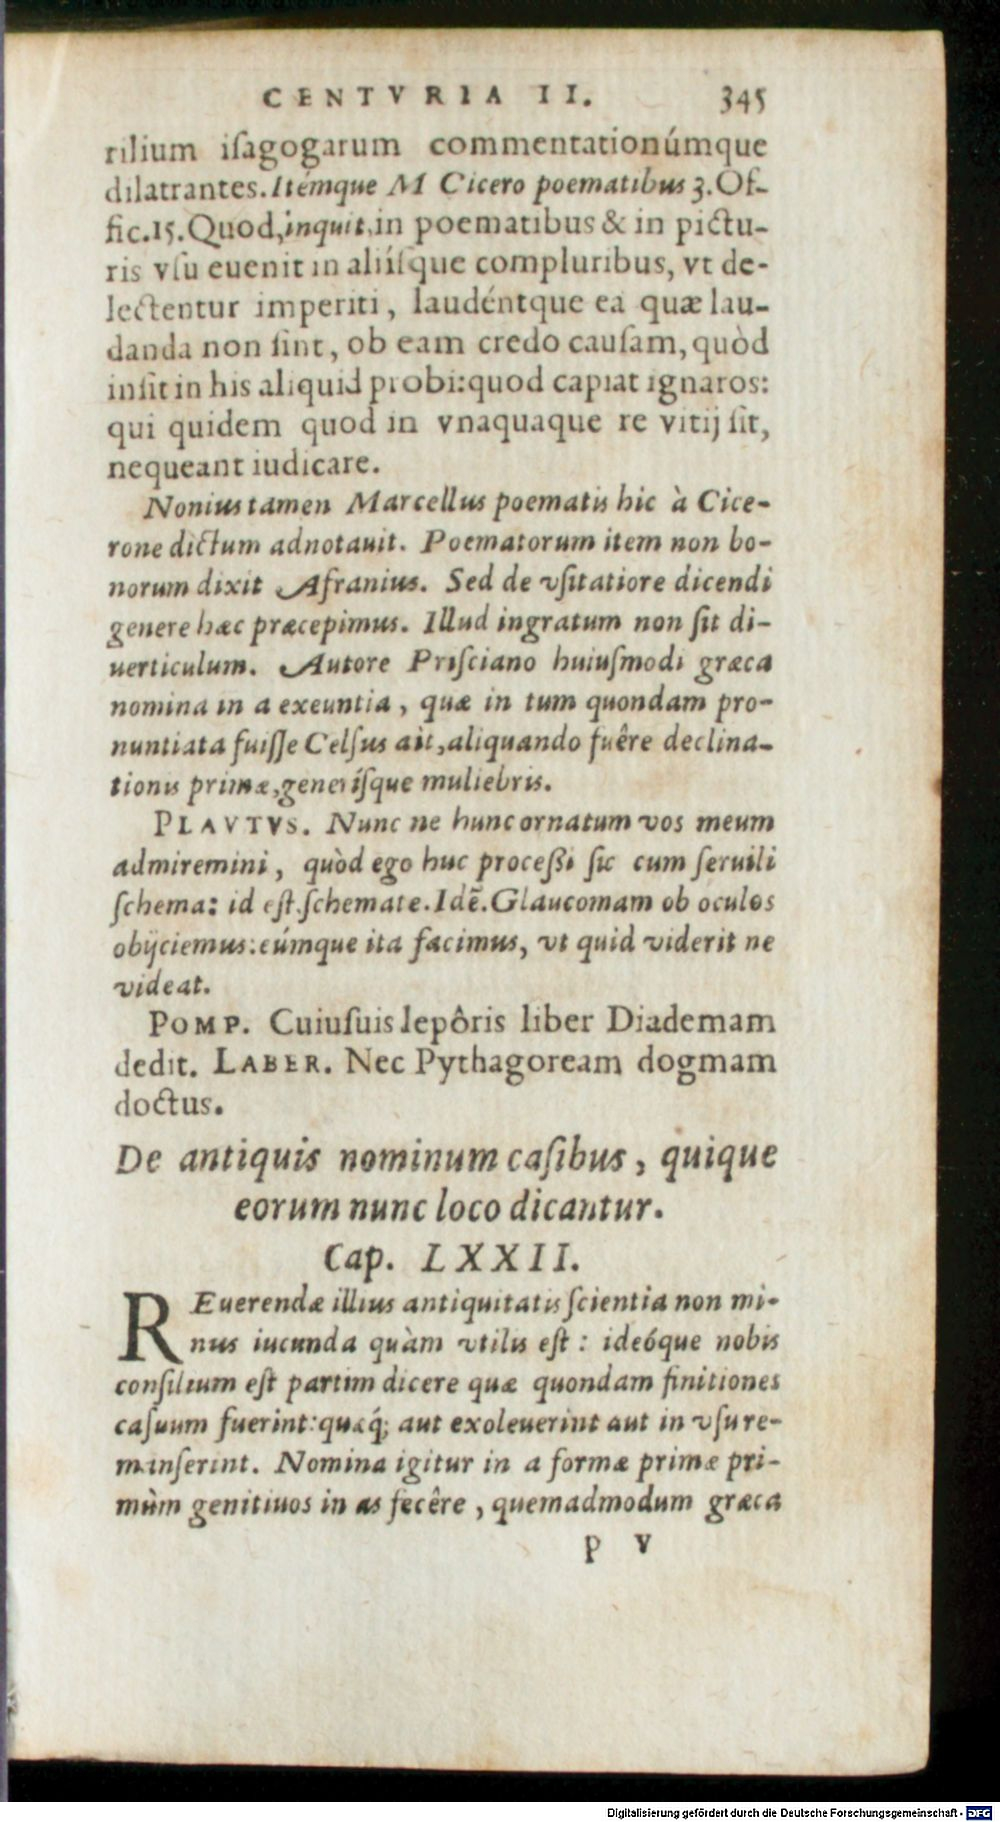 CENTVRIA II. 345
rilium iſagogarum commentationúmque
dilatrantes. Itémque M Cicero poematibus 3. Of-
fic. 15. Quod, inquit, in poematibus & in pictu-
ris vſu euenit in aliíſque compluribus, vt de-
lectentur imperiti, laudéntque ea quæ lau-
danda non ſint, ob eam credo cauſam, quòd
inſit in his aliquid probi: quod capiat ignaros:
qui quidem quod in vnaquaque re vitij ſit,
nequeant iudicare.
Nonius tamen Marcellus poematis hic à Cice-
rone dictum adnotauit. Poematorum item non bo-
norum dixit Afranius. Sed de vſitatiore dicendi
genere hæc præcepimus. Illud ingratum non ſit di-
uerticulum. Autore Priſciano huiuſmodi græca
nomina in a exeuntia, quæ in tum quondam pro-
nuntiata fuiſſe Celſus ait, aliquando fuêre declina-
tionis primæ, generíſque muliebris.
PLAVTVS. Nunc ne hunc ornatum vos meum
admiremini, quòd ego huc proceßi ſic cum ſeruili
ſchema: id eſt. ſchemate. Idē. Glaucomam ob oculos
obijciemus: eúmque ita facimus, vt quid viderit ne
videat.
POMP. Cuiuſuis lepôris liber Diademam
dedit. LABER. Nec Pythagoream dogmam
doctus.
De antiquis nominum caſibus, quique
eorum nunc loco dicantur.
Cap. LXXII.
REuerendæ illius antiquitatis ſcientia non mi-
nus iucunda quàm vtilis eſt: ideóque nobis
conſilium eſt partim dicere quæ quondam finitiones
caſuum fuerint: quæq́; aut exoleuerint aut in vſu re-
manſerint. Nomina igitur in a formæ primæ pri-
mùm genitiuos in as fecêre, quemadmodum græca
p v
Digitalisierung gefördert durch die Deutsche Forschungsgemeinschaft - DFG